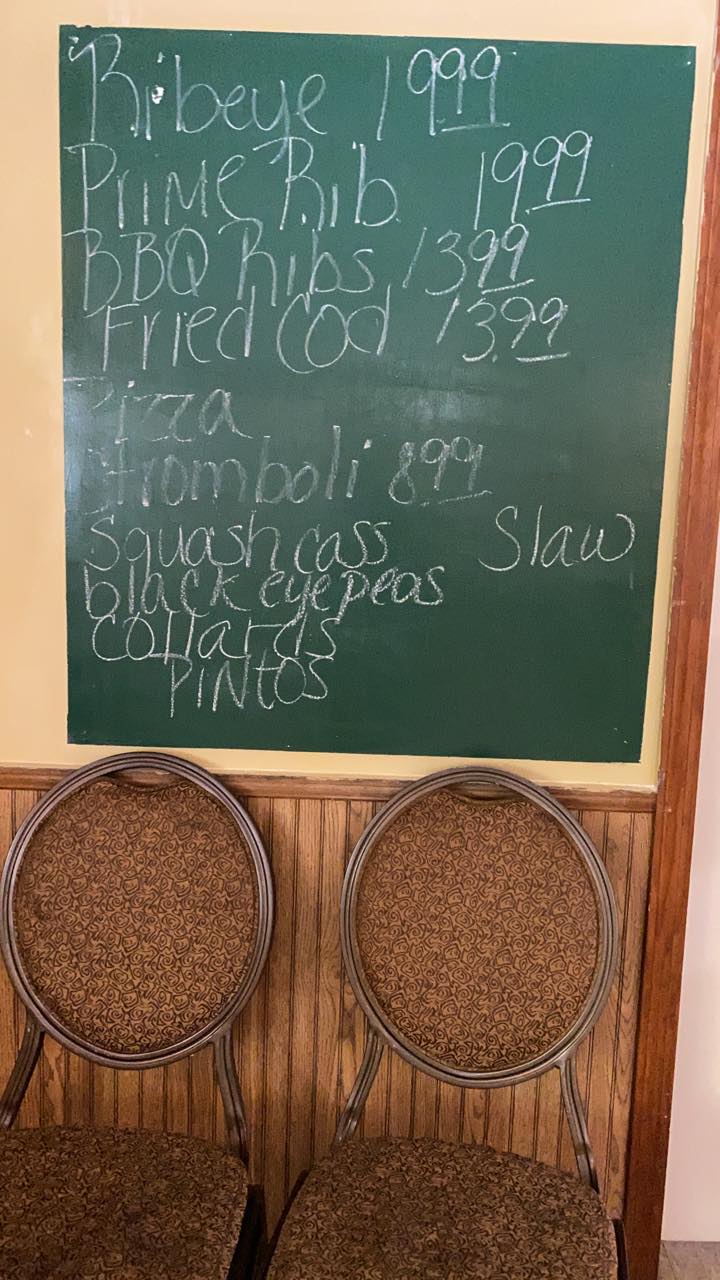 Ribeye 19 99
Prime Rib 19 99
BBQ Ribs 13 99
Fried Cod 13.99
Pizza
Stromboli 8 99
Squash cass Slaw
black eye peas
collards
PINTOS